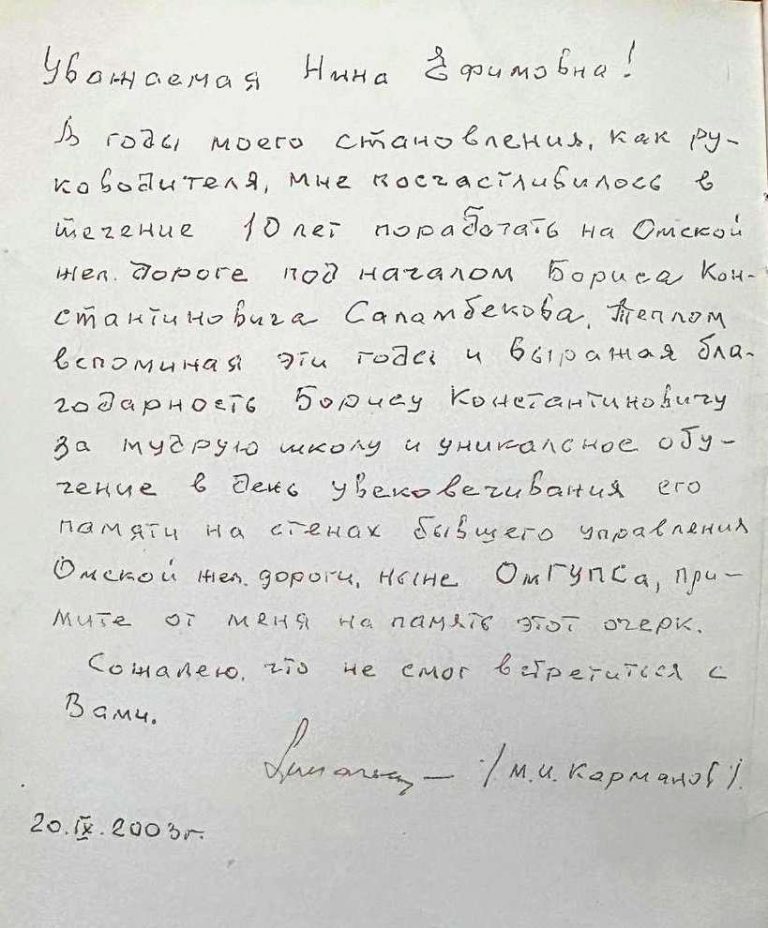 Уважаемая Нина Ефимовна!
В годы моего становления, как ру-
ководителя, мне посчастливилось в
течение 10 лет поработать на Омской
жел. дороге под началом Бориса Кон-
стантиновича Саламбекова. Теплом
вспоминая эти годы и выражая бла-
годарность Борису Константиновичу
за мудрую школу и уникальное обу-
чение в день увековечивания его
памяти на стенах бывшего управления
Омской жел. дороги, ныне ОмГУПСа, при-
мите от меня на память этот очерк.
Сожалею, что не смог встретиться с
Вами.
/М.И. Карманов/.
20.IX.2003г.